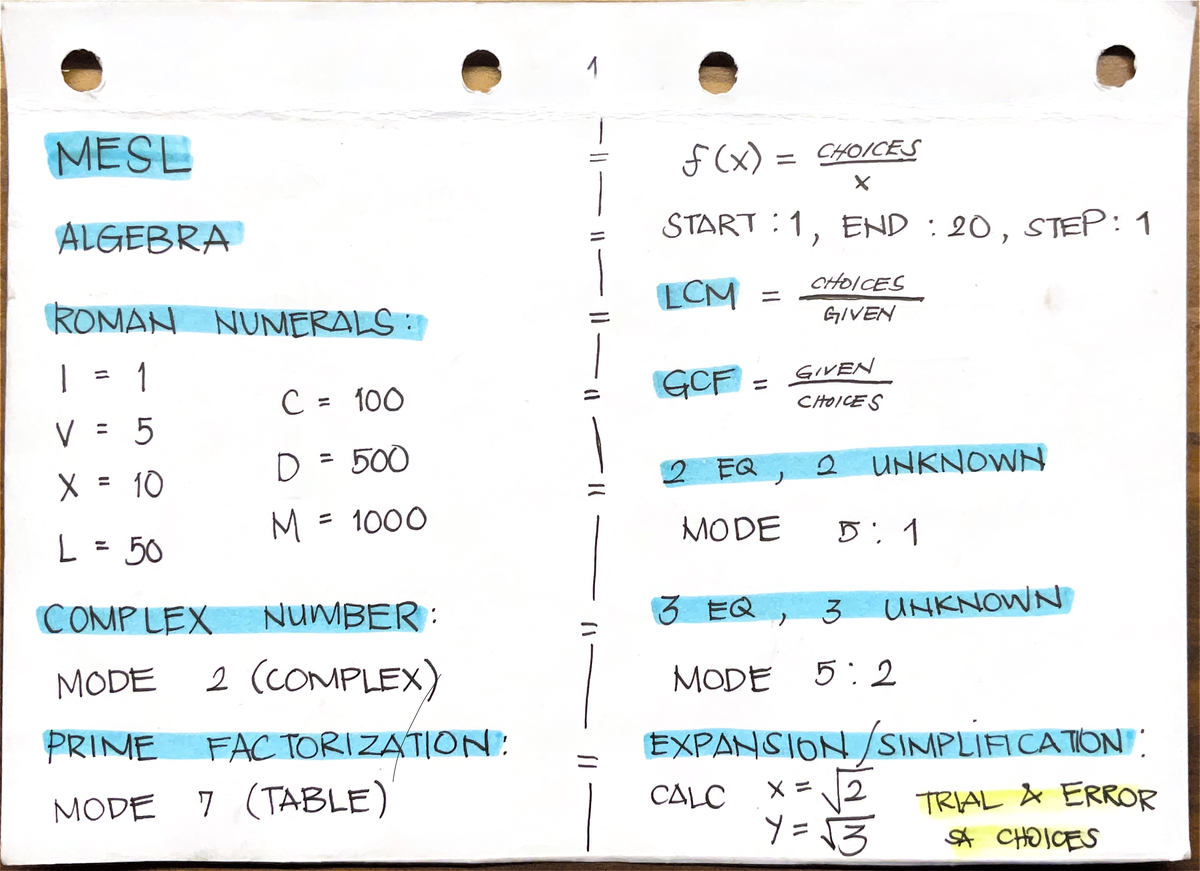 1
MESL
ALGEBRA
ROMAN NUMERALS:
I = 1
V = 5
X = 10
L = 50
C = 100
D = 500
M = 1000
COMPLEX NUMBER:
MODE 2 (COMPLEX)
PRIME FACTORIZATION:
MODE 7 (TABLE)
f(x) = CHOICES / x
START : 1, END : 20, STEP : 1
LCM = CHOICES / GIVEN
GCF = GIVEN / CHOICES
2 EQ, 2 UNKNOWN
MODE 5 : 1
3 EQ, 3 UNKNOWN
MODE 5 : 2
EXPANSION/SIMPLIFICATION:
CALC X = √2
Y = √3
TRIAL & ERROR
SA CHOICES